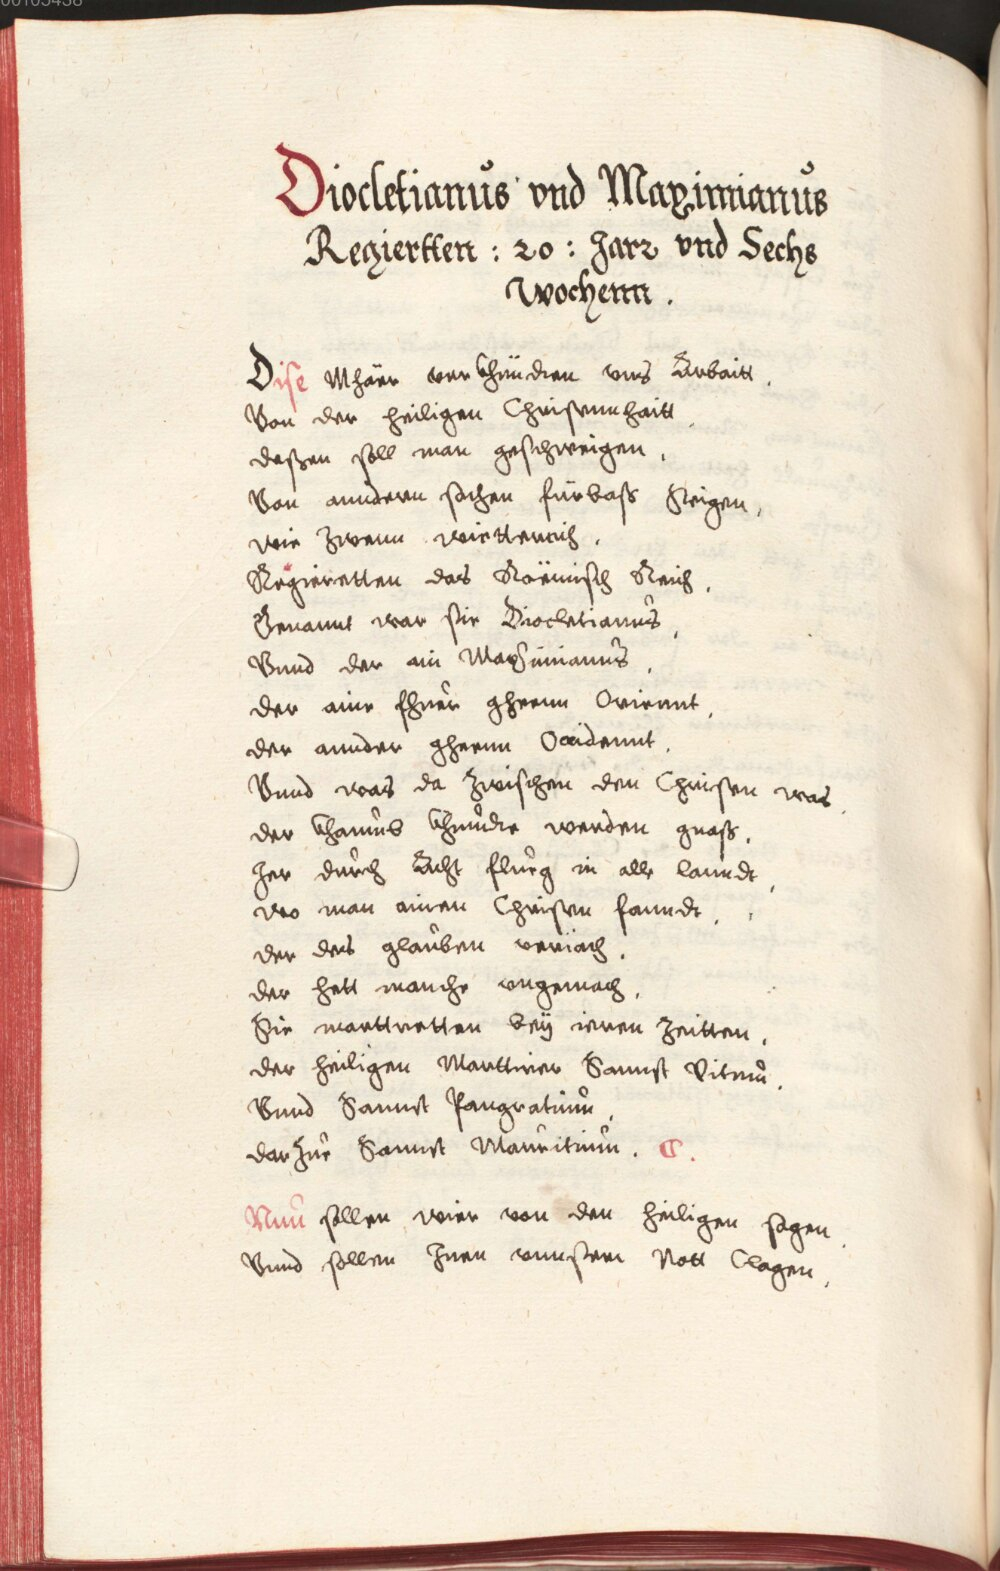 00105438
Diocletianus vnd Maximianus
Regiertten : 20 : Jarr vnd Sechs
wochenn .
Dise Mhäer verkhünden vns Arbaitt .
Von der heiligen Christennhaitt
deßen soll man geschweigen ,
Von anndern sachen fürbaß steigen ,
wie Zwenn wietterich .
Regieretten das Röemisch Reich .
Genannt war sie Diocletianus ,
Vnnd der ain Maximianus .
der aine fhuer gheenn Orient ,
der annder gheenn Occidennt .
Vnnd was da Zwischen den Christen was .
der khaumb khunde werden gnaß .
Jer durch Acht flueg in alle lanndt ,
wo man ainen Christen fanndt ,
der des glauben veriach .
der hett manche vngemach .
Sie marttretten bey ieren Zeitten .
der heiligen Marttirer Sannct Vitum .
Vnnd Sannct Pangratium ,
darZue Sannct Mauritium . C .
Nun sollen wier von den heiligen sagen .
Vnnd sollen Jnen vnnsern Nott Clagen ,